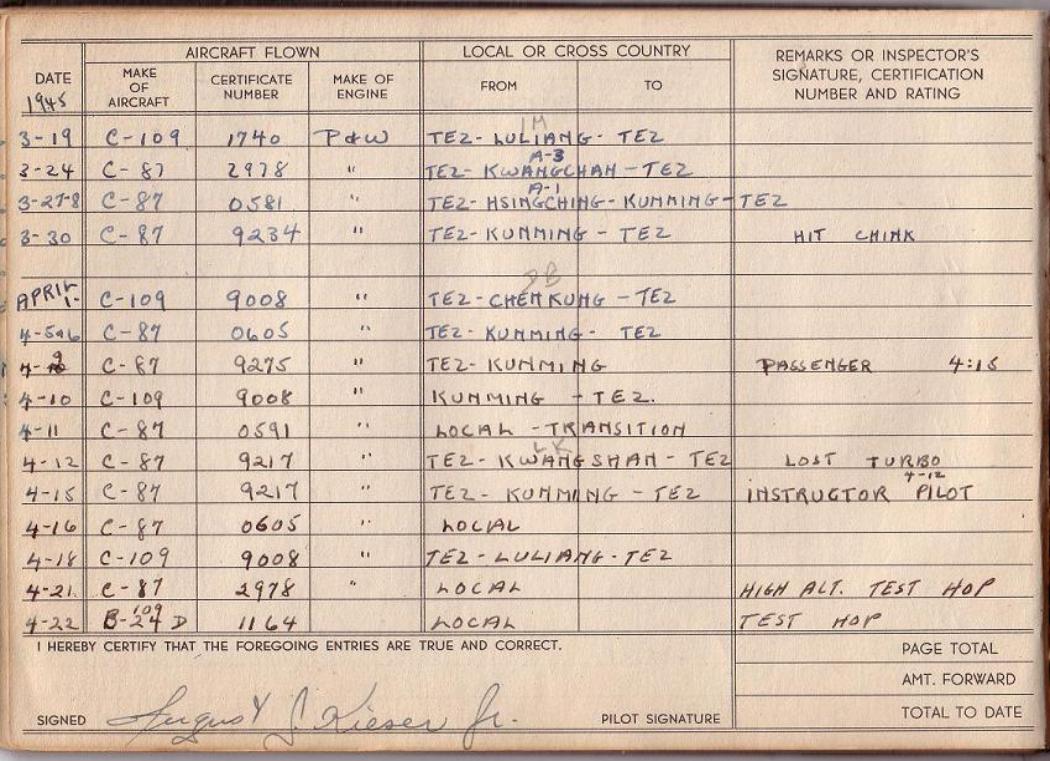 AIRCRAFT FLOWN LOCAL OR CROSS COUNTRY REMARKS OR INSPECTOR'S SIGNATURE, CERTIFICATION NUMBER AND RATING
DATE 1945 MAKE OF AIRCRAFT CERTIFICATE NUMBER MAKE OF ENGINE FROM TO
3-19 C-109 1740 P&W TEZ-LULIANG-TEZ
A-3
3-24 C-87 2978 " TEZ-KWANGCHAN-TEZ
A-1
3-27-8 C-87 0581 " TEZ-HSINGCHING-KUNMING-TEZ
3-30 C-87 9234 " TEZ-KUNMING-TEZ HIT CHINK
APRIL 1- C-109 9008 " TEZ-CHENKUNG-TEZ
4-5&6 C-87 0605 " TEZ-KUNMING-TEZ
4-9 C-87 9275 " TEZ-KUNMING PASSENGER 4:15
4-10 C-109 9008 " KUNMING-TEZ.
4-11 C-87 0591 " LOCAL-TRANSITION
LK
4-12 C-87 9217 " TEZ-KWANGSHAN-TEZ LOST TURBO
4-12
4-15 C-87 9217 " TEZ-KUNMING-TEZ INSTRUCTOR PILOT
4-16 C-87 0605 " LOCAL
4-18 C-109 9008 " TEZ-LULIANG-TEZ
4-21 C-87 2978 " LOCAL HIGH ALT. TEST HOP
109
4-22 B-24 D 1164 LOCAL TEST HOP
I HEREBY CERTIFY THAT THE FOREGOING ENTRIES ARE TRUE AND CORRECT. PAGE TOTAL
AMT. FORWARD
SIGNED J. Kieser Jr. PILOT SIGNATURE TOTAL TO DATE